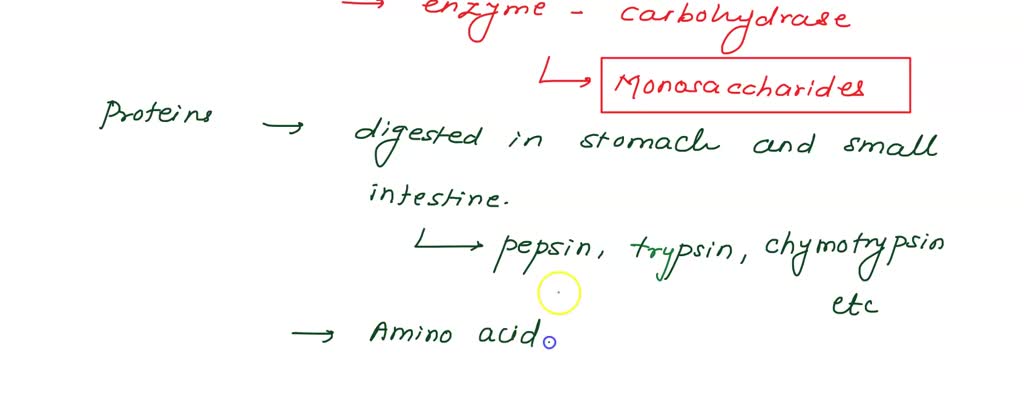 → enzyme - carbohydrase
↳ Monosaccharides
Proteins → digested in stomach and small
intestine.
↳ pepsin, trypsin, chymotrypsin
etc
→ Amino acid